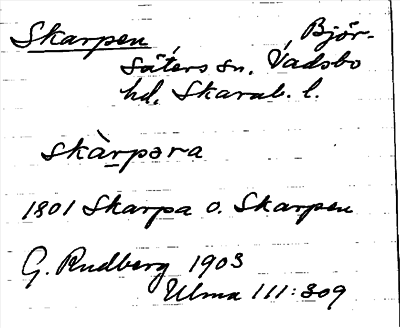 Skarpen, Björ-
säters sn. Vadsbo
hd. Skarab. l.
skàrpəra
1801 Skarpa o. Skarpen
G. Rudberg 1903
Ulma 111:309